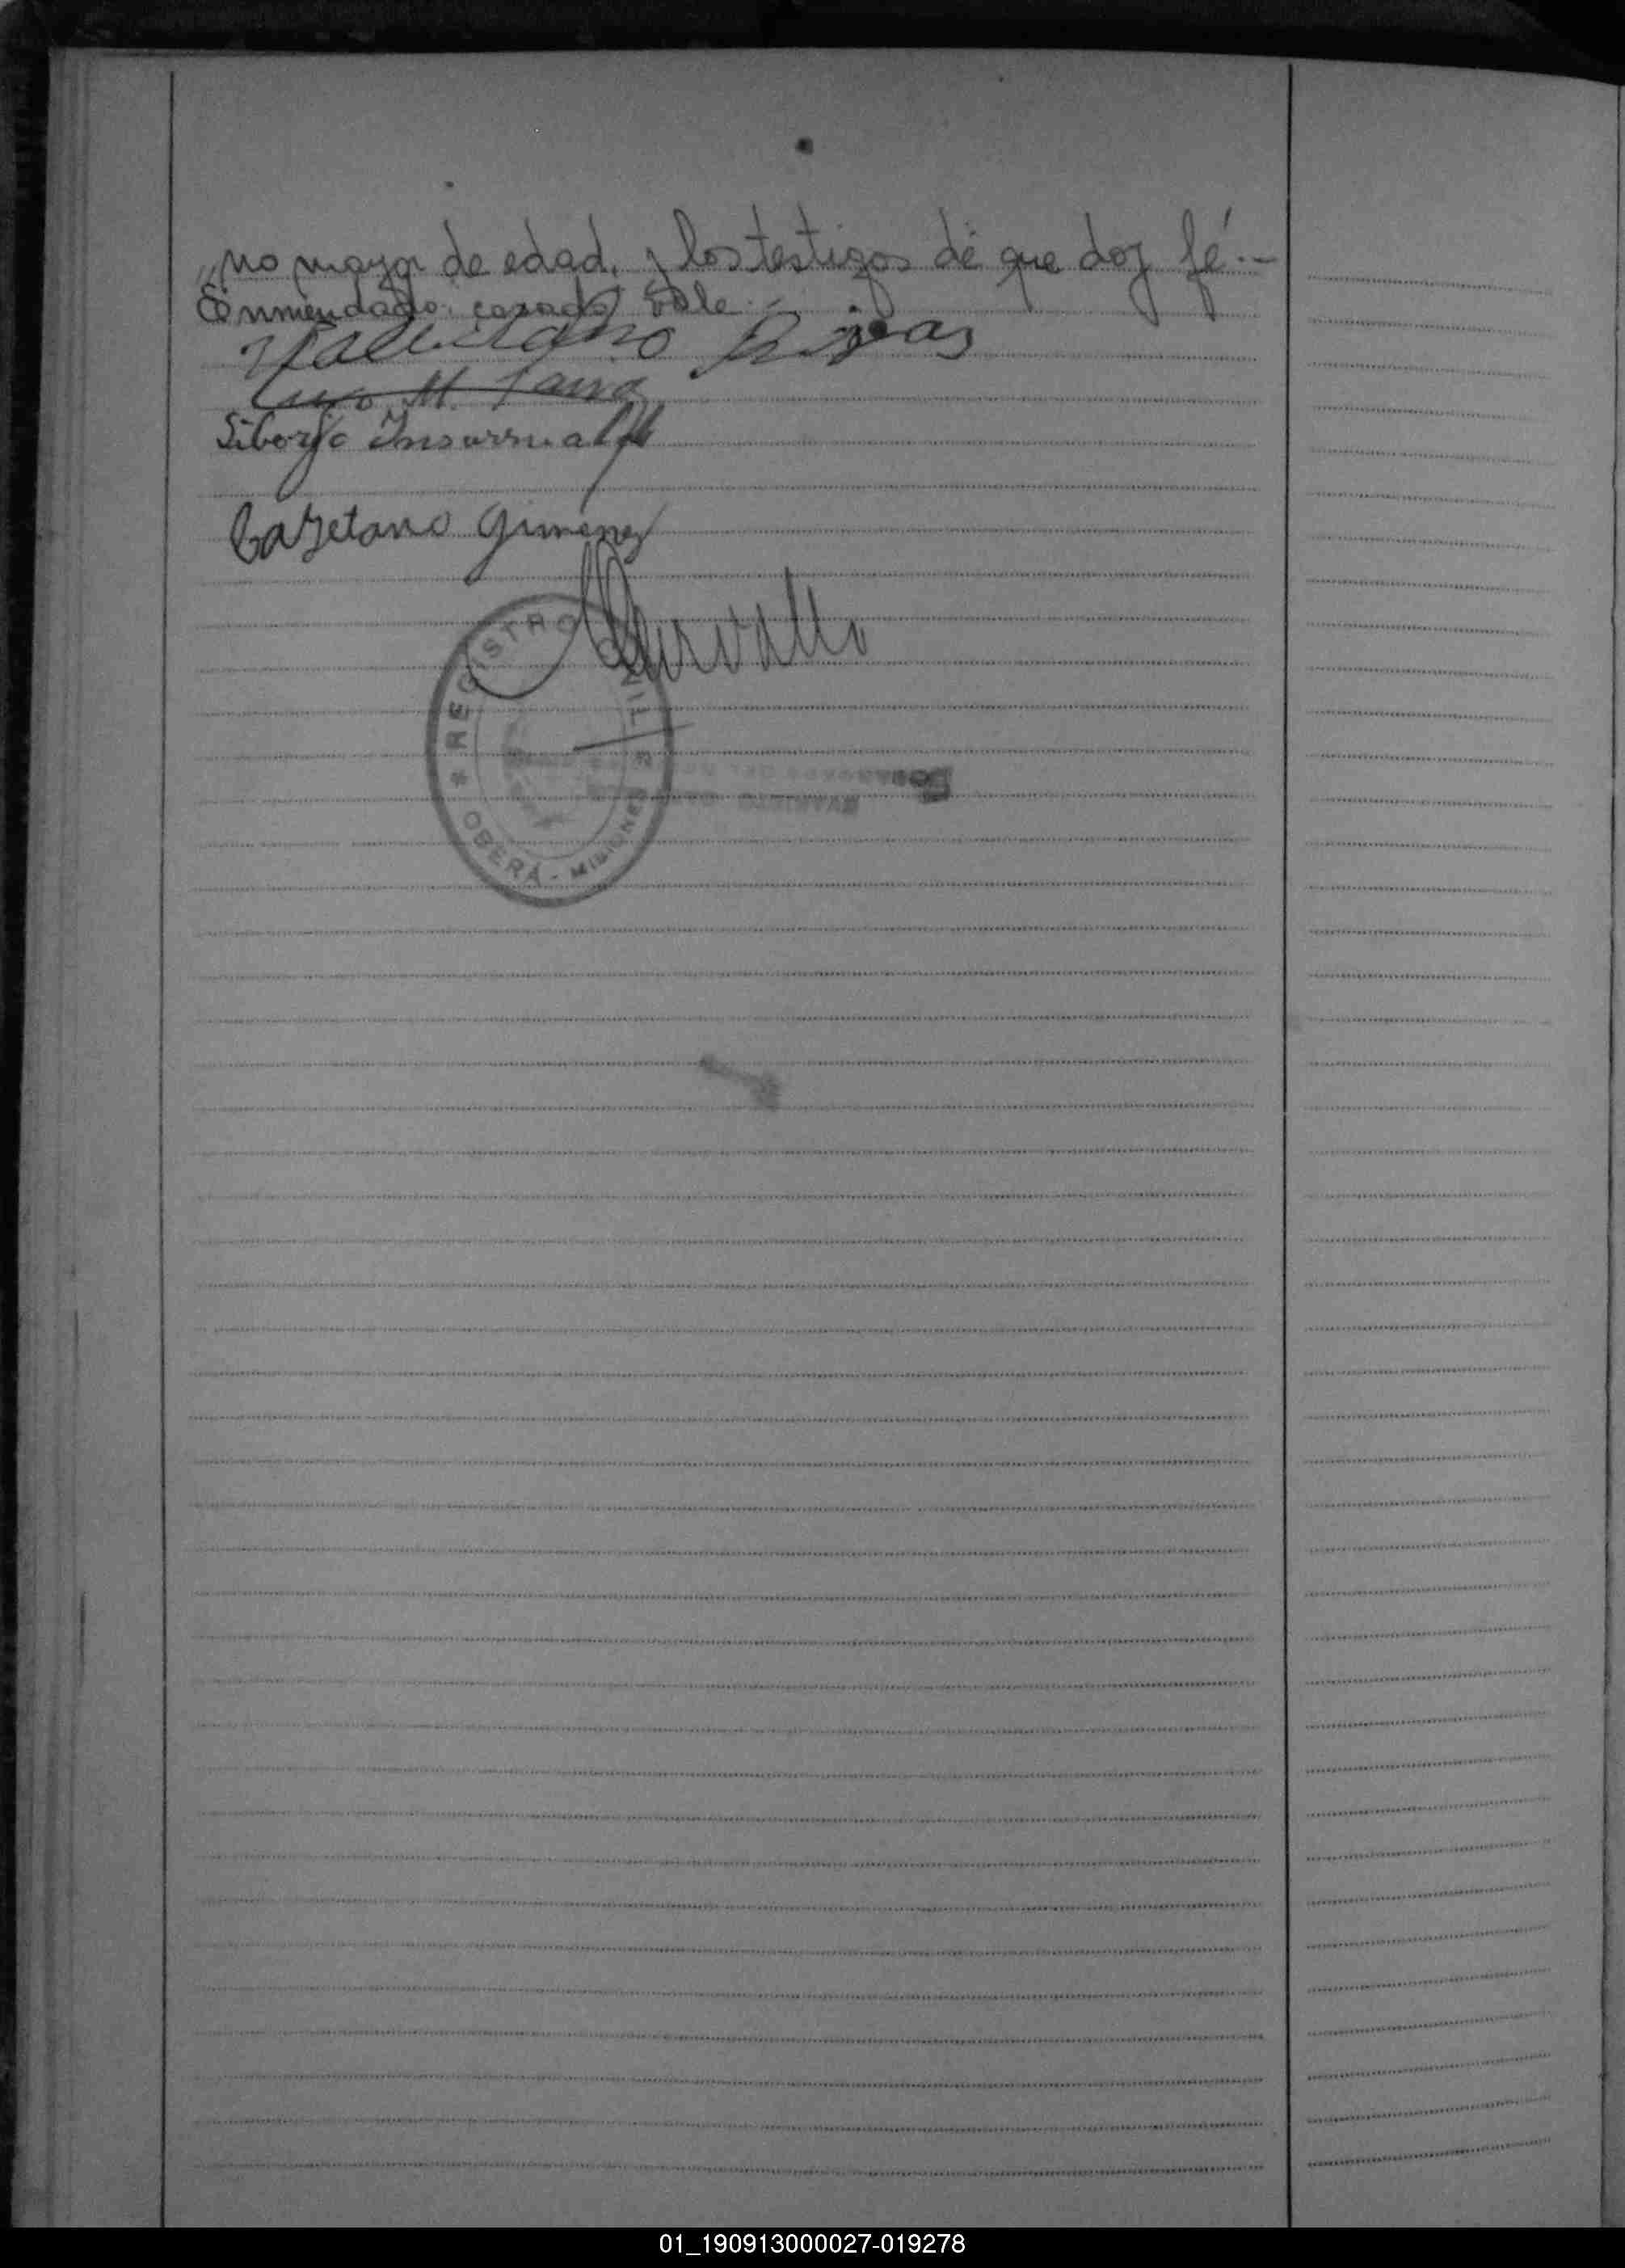 „no mayor de edad, y los testigos de que doy fé.—
Enmendado: casado Vale.—
Rojas
M.
Insaurralde
Cayetano Gimenez
REGISTRO CIVIL
OBERÁ - MISIONES
01_190913000027-019278